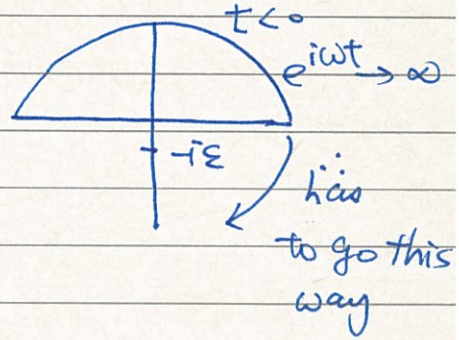 t < 0
e^{iωt} → ∞
-iε
∴ has
to go this
way